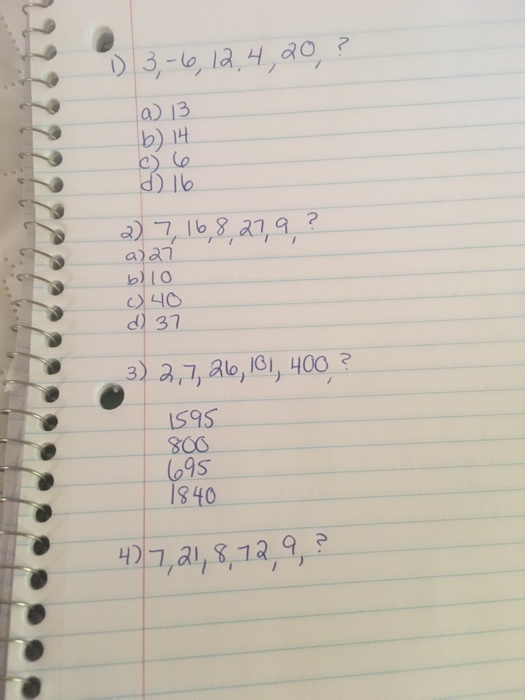 1) 3, -6, 12, 4, 20, ?
a) 13
b) 14
c) 6
d) 16
2) 7, 16, 8, 27, 9, ?
a) 27
b) 10
c) 40
d) 37
3) 2, 7, 26, 101, 400, ?
1595
800
695
1840
4) 7, 21, 8, 72, 9, ?